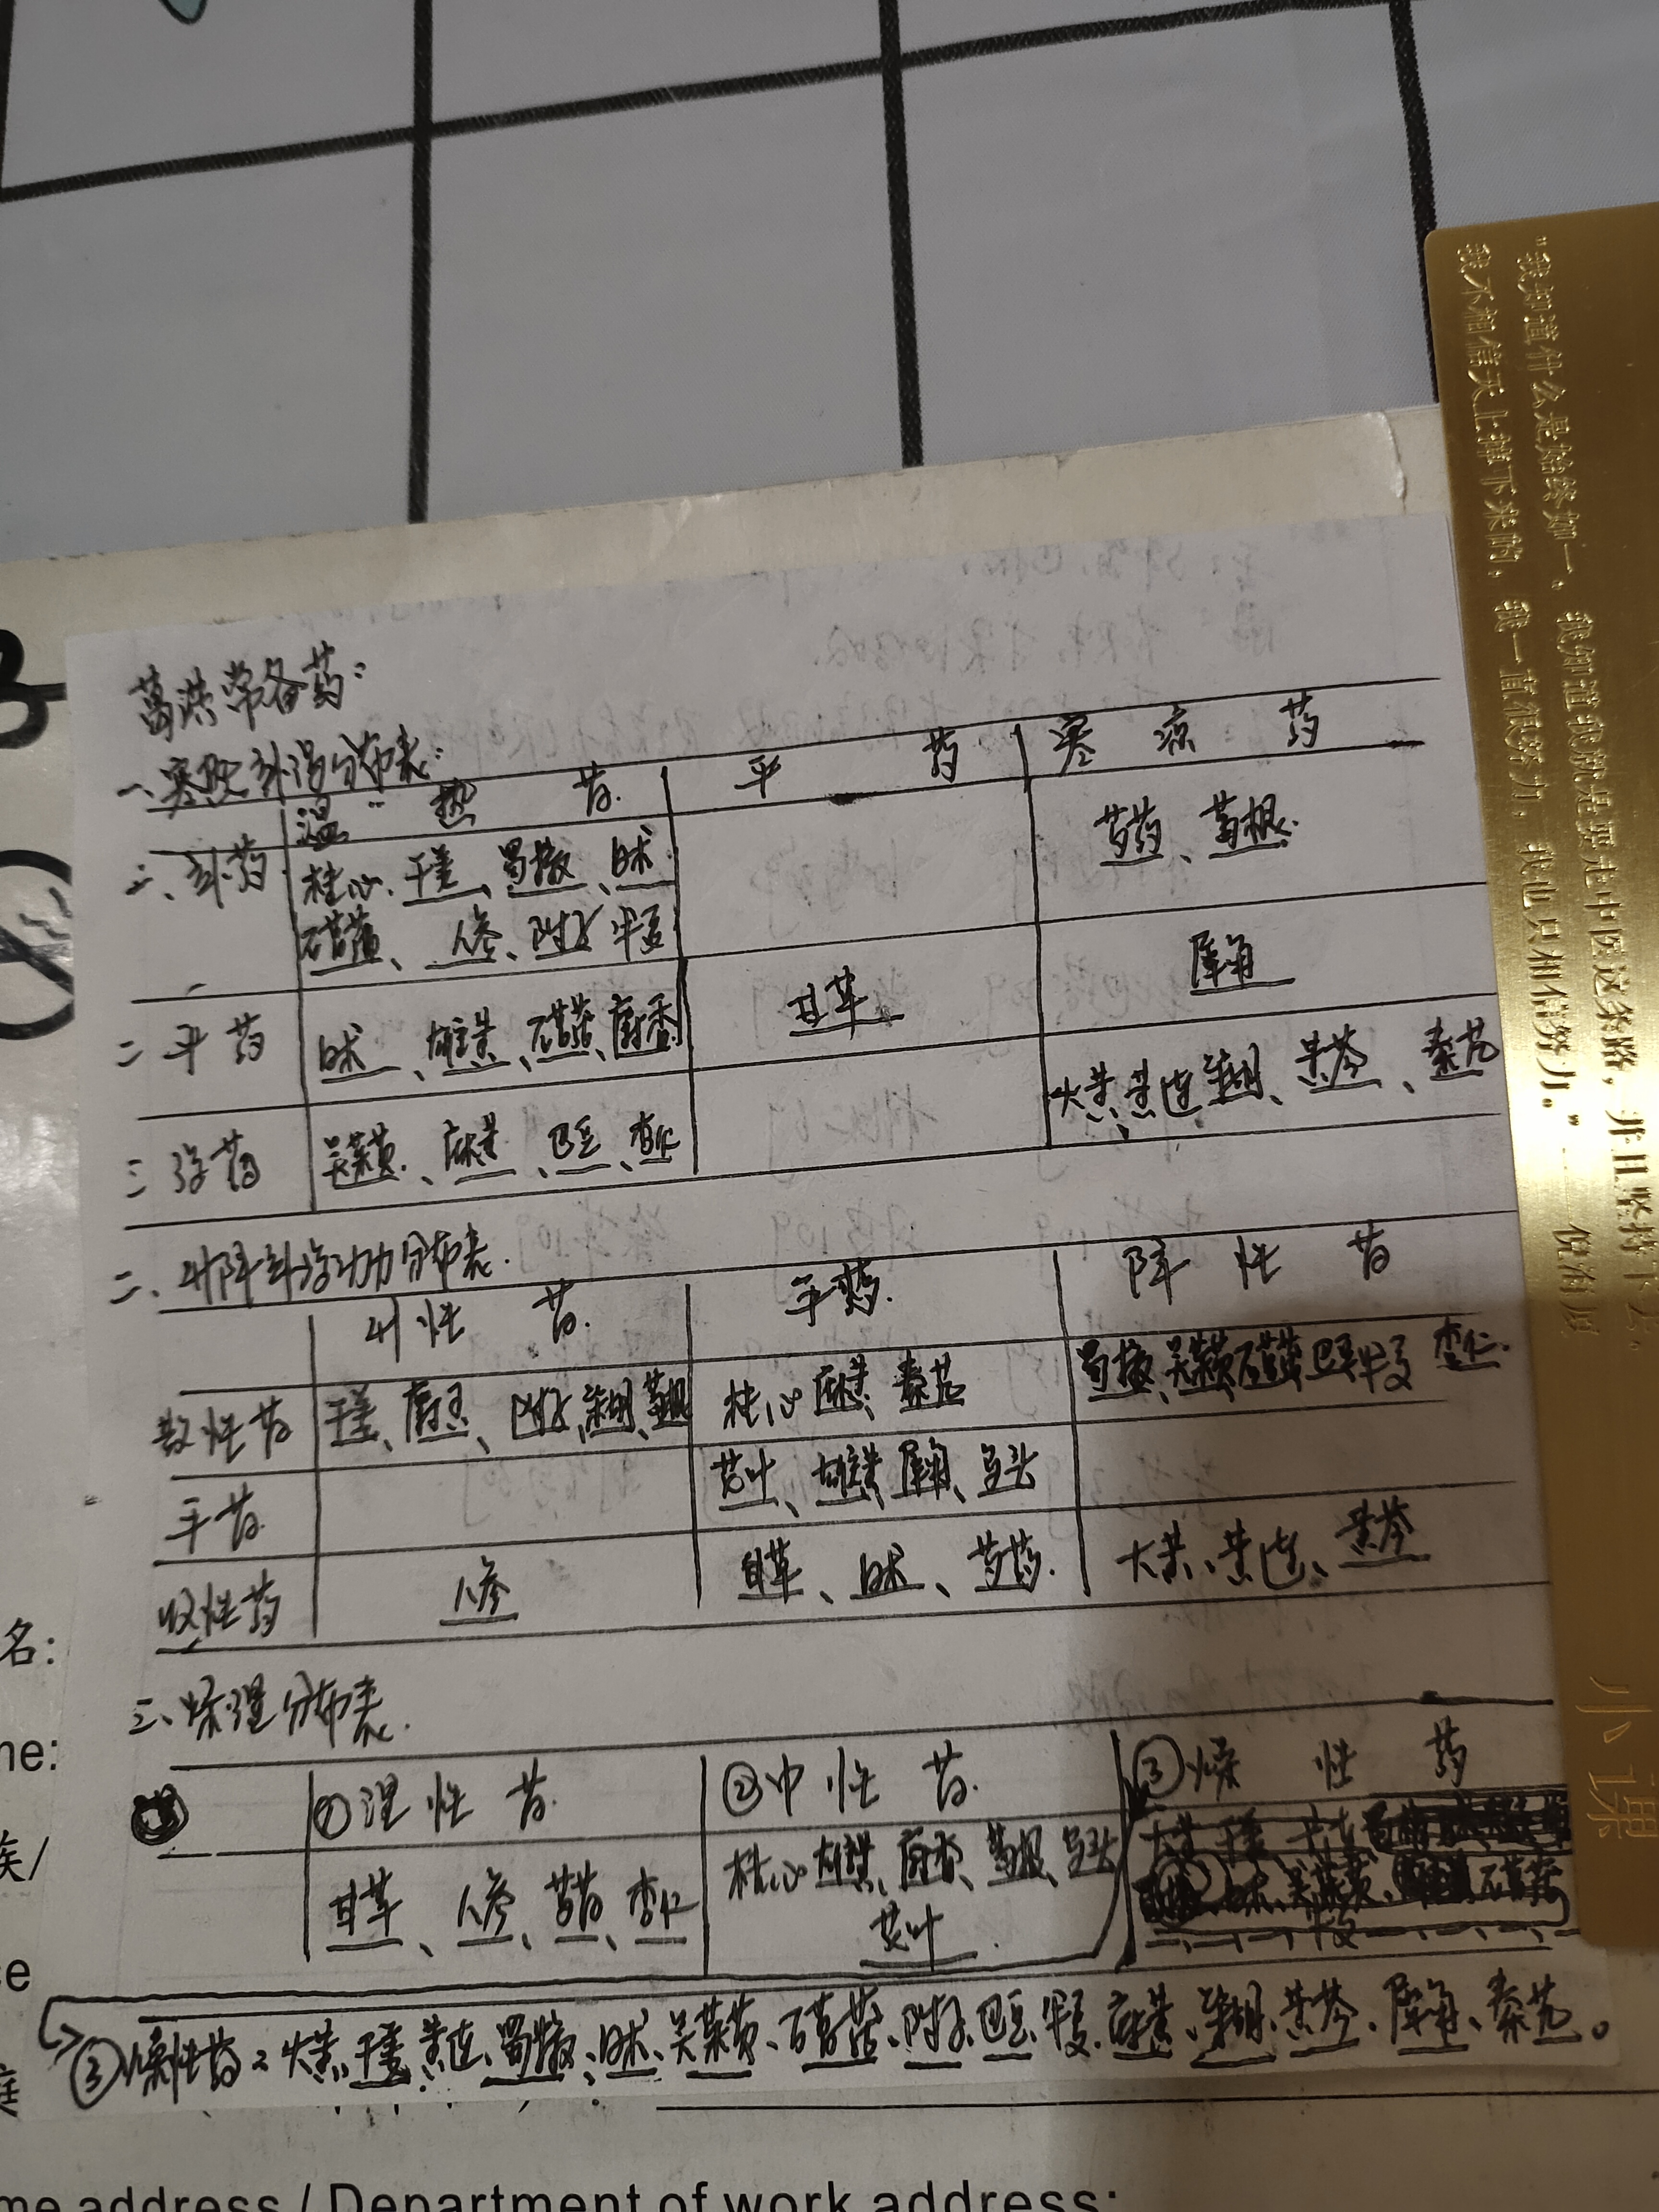 葛洪常备药：
一、寒热补泻分布表：
温 热 药 平 药 寒 凉 药
一、补药 桂心、干姜、蜀椒、白术 芍药、葛根
石菖蒲、人参、附子 半夏
二平药 白术、雄黄、石菖蒲、麝香 甘草 犀角
三泻药 吴茱萸、麻黄、巴豆、杏仁 大黄、黄连、柴胡、黄芩、秦艽
二、升降补泻功力分布表.
升 性 药 平药 降 性 药
散性药 干姜、麝香、附子、柴胡、葛根 桂心 麻黄、秦艽 蜀椒、吴茱萸、石菖蒲 巴豆、半夏 杏仁
平药 茺叶、雄黄、犀角、乌头
收性药 人参 甘草、白术、芍药 大黄、黄连、黄芩
三、燥湿分布表.
①湿 性 药 ②中 性 药 ③燥 性 药
甘草、人参、芍药、杏仁 桂心 雄黄、麝香、葛根、乌头
③燥性药：大黄、干姜、黄连、蜀椒、白术、吴茱萸、石菖蒲、附子、巴豆、半夏、麻黄、柴胡、黄芩、犀角、秦艽。
“我知道什么是始终如一、我知道我就是要走中医这条路，并且坚持下去.
我不相信天上掉下来的，我一直很努力，我也只相信努力。”——倪海厦
小课
名:
me:
族/
ce
庭
me address / Department of work address: